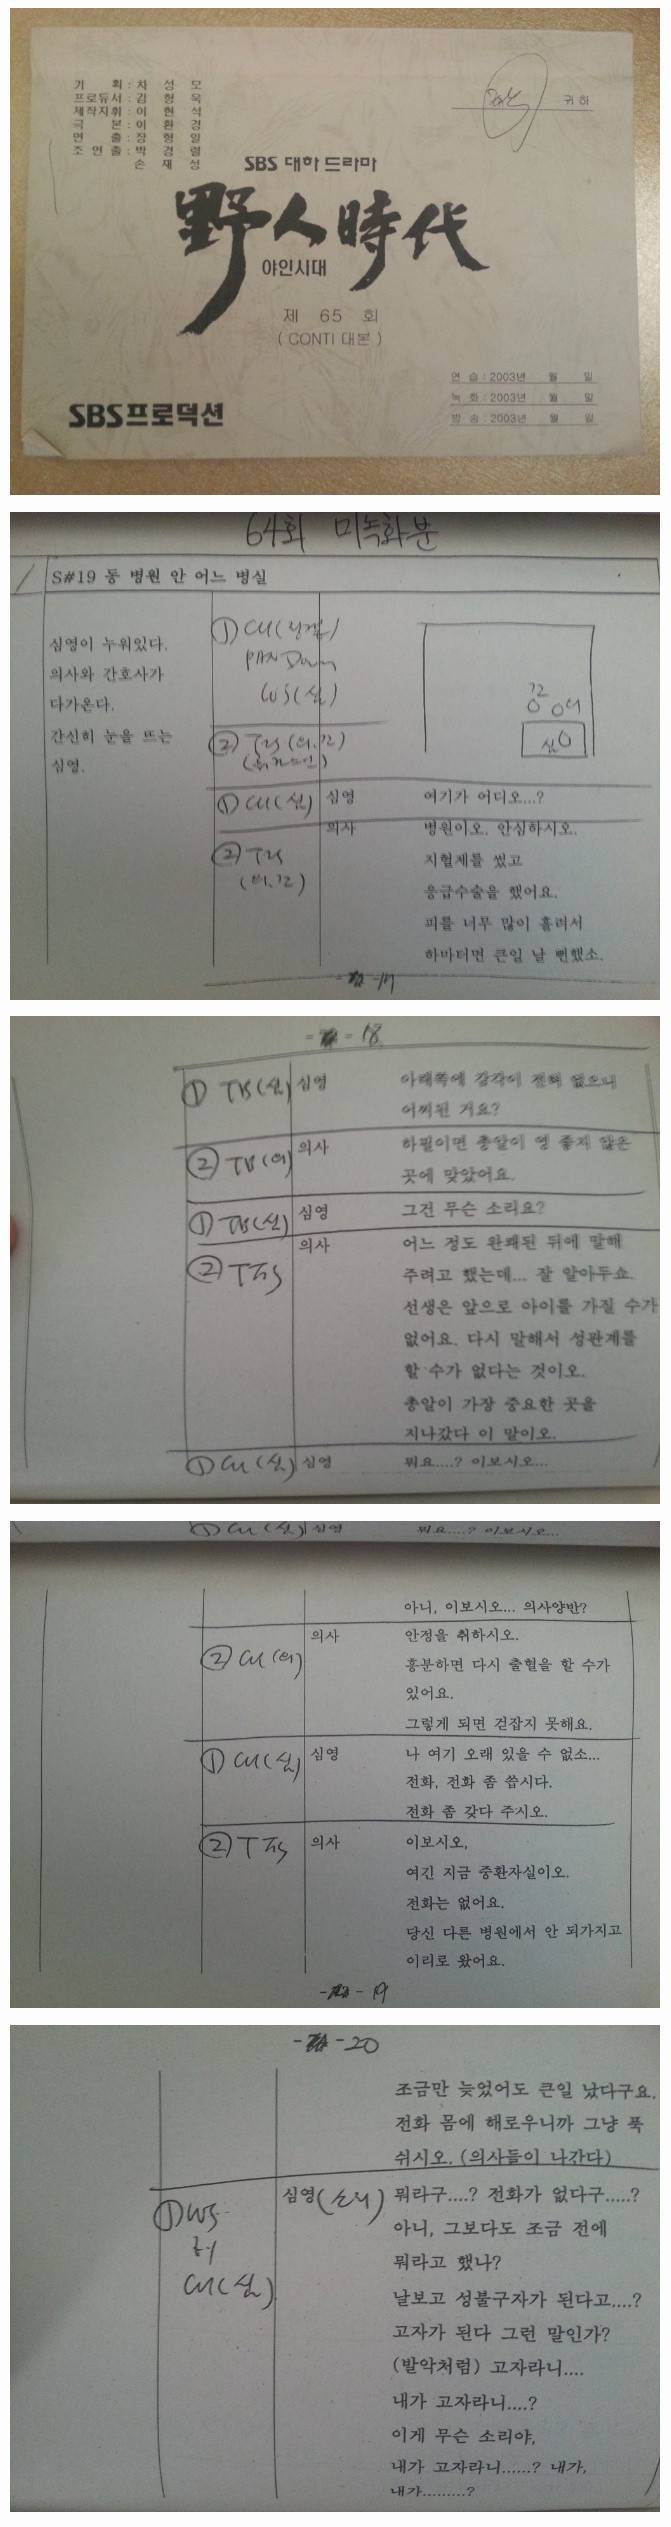 기 획 : 차 성 모
프로듀서 : 김 형 욱
제작지휘 : 이 현 석
극 본 : 이 환 경
연 출 : 장 형 일
조 연 출 : 박 경 렬
손 재 성
귀 하
SBS 대하 드라마
野人時代
야인시대
제 65 회
( CONTI 대본 )
연 습 : 2003년 월 일
녹 화 : 2003년 월 일
방 송 : 2003년 월 일
SBS프로덕션
64회 미녹화분
S#19 동 병원 안 어느 병실
심영이 누워있다.
의사와 간호사가
다가온다.
간신히 눈을 뜨는
심영.
① CU(
PAN Down
WS(심)
②
① CU(심) 심영 여기가 어디오...?
의사 병원이오. 안심하시오.
② 지혈제를 썼고
응급수술을 했어요.
피를 너무 많이 흘려서
하마터면 큰일 날 뻔했소.
-17
- 18
① TB(심) 심영 아래쪽에 감각이 전혀 없으니
어찌된 거요?
② TB(의) 의사 하필이면 총알이 영 좋지 않은
곳에 맞았어요.
① TB(심) 심영 그건 무슨 소리요?
② 의사 어느 정도 완쾌된 뒤에 말해
주려고 했는데... 잘 알아두쇼.
선생은 앞으로 아이를 가질 수가
없어요. 다시 말해서 성관계를
할 수가 없다는 것이오.
총알이 가장 중요한 곳을
지나갔다 이 말이오.
① CU(심) 심영 뭐요....? 이보시오...
① CU(심) 심영 뭐요....? 이보시오...
아니, 이보시오... 의사양반?
② CU(의) 의사 안정을 취하시오.
흥분하면 다시 출혈을 할 수가
있어요.
그렇게 되면 걷잡지 못해요.
① CU(심) 심영 나 여기 오래 있을 수 없소...
전화, 전화 좀 씁시다.
전화 좀 갖다 주시오.
② 의사 이보시오,
여긴 지금 중환자실이오.
전화는 없어요.
당신 다른 병원에서 안 되가지고
이리로 왔어요.
- 19
- 20
조금만 늦었어도 큰일 났다구요.
전화 몸에 해로우니까 그냥 푹
쉬시오. (의사들이 나간다)
① WS 심영(소리) 뭐라구....? 전화가 없다구.....?
아니, 그보다도 조금 전에
CU(심) 뭐라고 했나?
날보고 성불구자가 된다고....?
고자가 된다 그런 말인가?
(발악처럼) 고자라니....
내가 고자라니....?
이게 무슨 소리야,
내가 고자라니......? 내가,
내가.........?